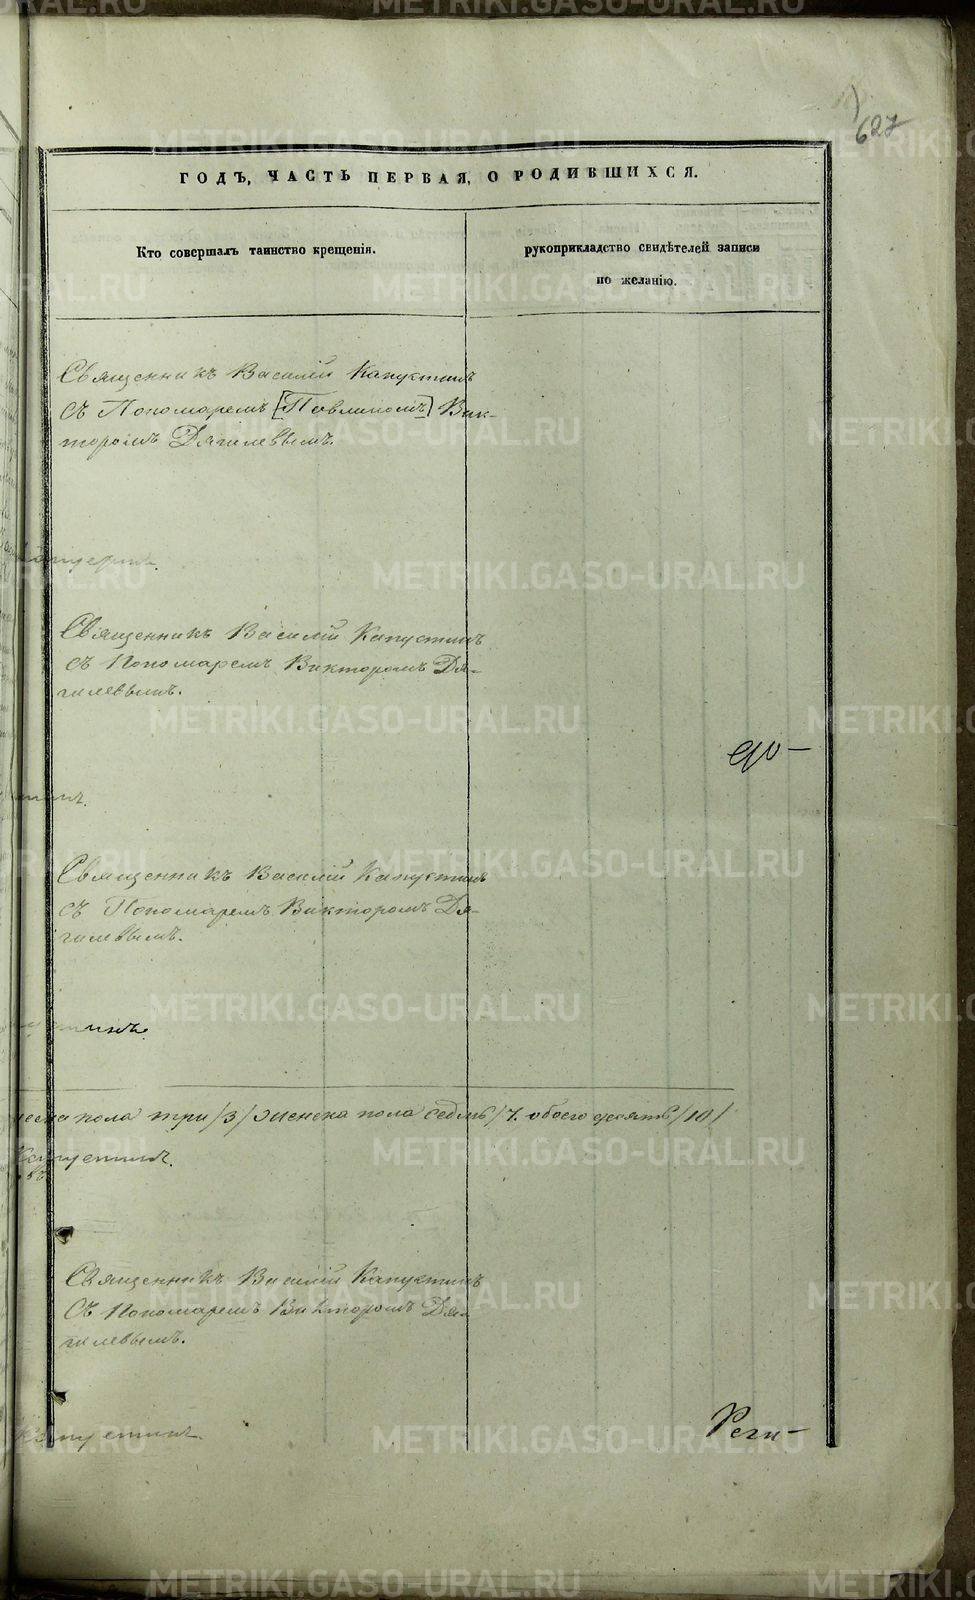 627
ГОДЪ, ЧАСТЬ ПЕРВАЯ, О РОДИВШИХСЯ.
Кто совершалъ таинство крещенія.
рукоприкладство свидѣтелей записи
по желанію.
Священникъ Василій Капустинъ
съ Пономаремъ [Павлиномъ] Вик-
торомъ Дягилевымъ.
Священникъ Василій Капустинъ
съ Пономаремъ Викторомъ Дя-
гилевымъ.
Священникъ Василій Капустинъ
съ Пономаремъ Викторомъ Дя-
гилевымъ.
пола три /3/ женска пола седмь /7. обоего десять /10/
Капустинъ.
Священникъ Василій Капустинъ
съ Пономаремъ Викторомъ Дя-
гилевымъ.
Капустинъ.
Реги-
METRIKI.GASO-URAL.RU